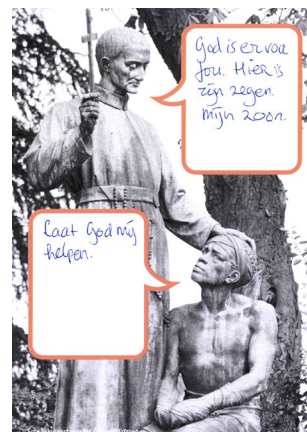 God is er voor
jou. Hier is
zijn zegen.
mijn zoon
Laat God mij
helpen.